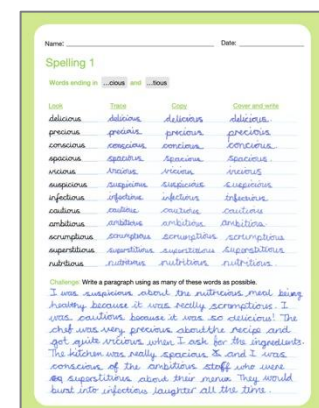 Name: Date:
Spelling 1
Words ending in ...cious and ...tious
Look Trace Copy Cover and write
delicious delicious delicious delicious.
precious precious precious precious
conscious conscious concious concious.
spacious spacious spacious spacious.
vicious vicious vicious vicious
suspicious suspicious suspicious suspicious
infectious infectious infectious infectious
cautious cautious cautious cautious
ambitious ambitious ambitious ambitious.
scrumptious scrumptious scrumptious scrumptious
superstitious superstitious superstitious superstitious.
nutritious nutritious nutritious nutritious.
Challenge: Write a paragraph using as many of these words as possible.
I was suspicious about the nutricious meal being
healthy because it was really scromptious. I
was cautious because it was so delicious! The
chef was very precious about the recipe and
got quite vicious when I ask for the ingredients.
The kitchen was really spacious & and I was
conscious of the ambitious staff who were
superstitious about their menu. They would
burst into infectious laughter all the time.